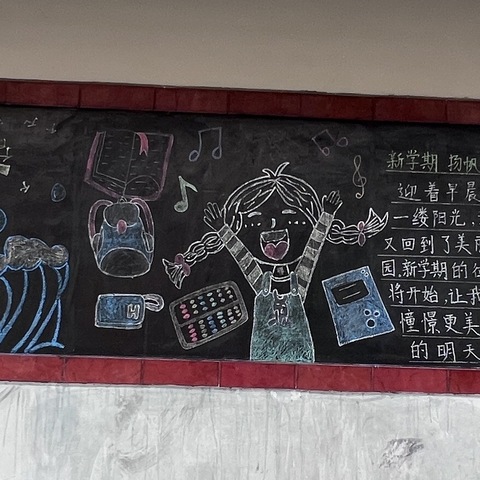 新学期 扬帆
迎着早晨
一缕阳光,
又回到了美丽
园,新学期的
将开始,让我
憧憬更美
的明天